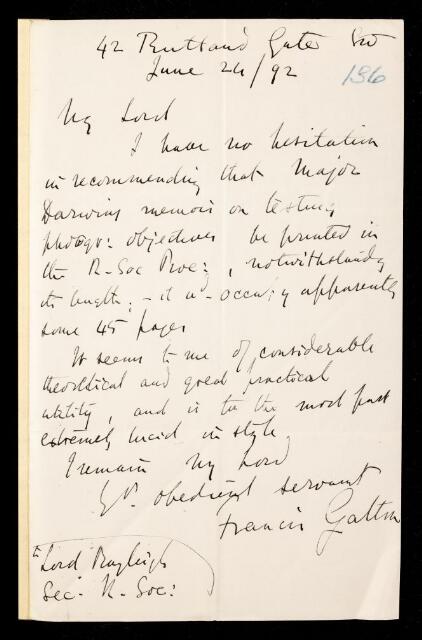 42 Rutland Gate SW
June 24/92
136
My Lord
I have no hesitation
in recommending that Major
Darwin's memoir on testing
photogr: objectives be printed in
the R. Soc Proc:, notwithstanding
its length; – it occupying apparently
some 45 pages
It seems to me of considerable
theoretical and great practical
utility, and is for the most part
extremely lucid in style.
I remain My Lord
Yr. obedient servant
Francis Galton
to Lord Rayleigh
Sec: R. Soc: